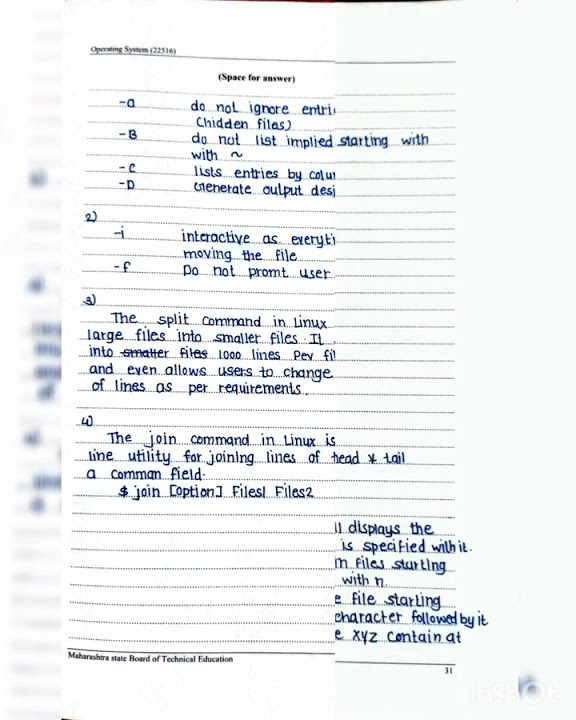 Operating System (22516)
(Space for answer)
-a do not ignore entri
(hidden files)
-B do not list implied starting with
with ~
-C lists entries by colu
-D Generate output desi
2)
-i interactive as everyti
moving the file
-f Do not promt user
3)
The split command in Linux
large files into smaller files. It
into smaller files 1000 lines Per fil
and even allows users to change
of lines as per requirements.
4)
The join command in Linux is
line utility for joining lines of head & tail
a comman field.
$ join [option] Files1 Files2
displays the
is specified with it.
m files starting
with n.
e file starting
character followed by it
e xyz contain at
Maharashtra state Board of Technical Education
31
InShOt